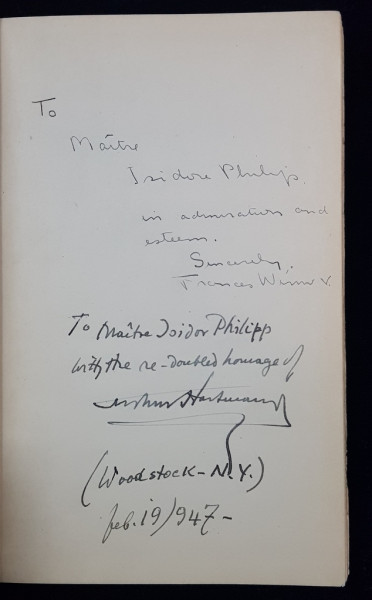 To
Maître
Isidore Philipp.
in admiration and
esteem.
Sincerely,
Frances
To Maître Isidor Philipp
with the re-doubled homage of
Arthur Hartmann
(Woodstock - N.Y.)
feb. 19/947 -